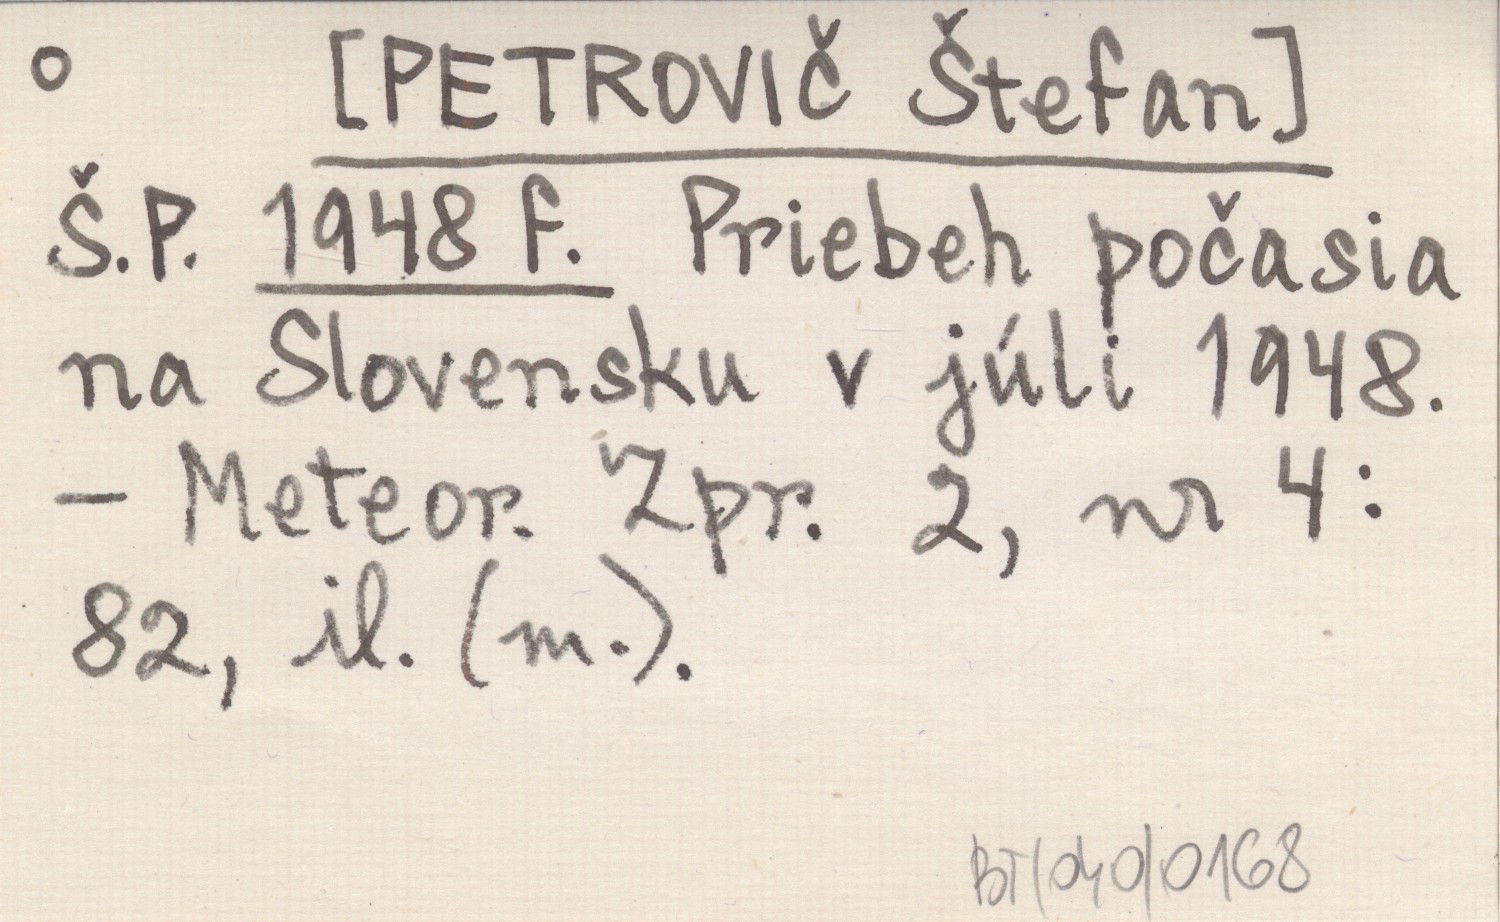 ° [PETROVIČ Štefan]
Š.P. 1948 f. Priebeh počasia
na Slovensku v júli 1948.
– Meteor. Zpr. 2, nr 4:
82, il. (m.).
BT/040/0168